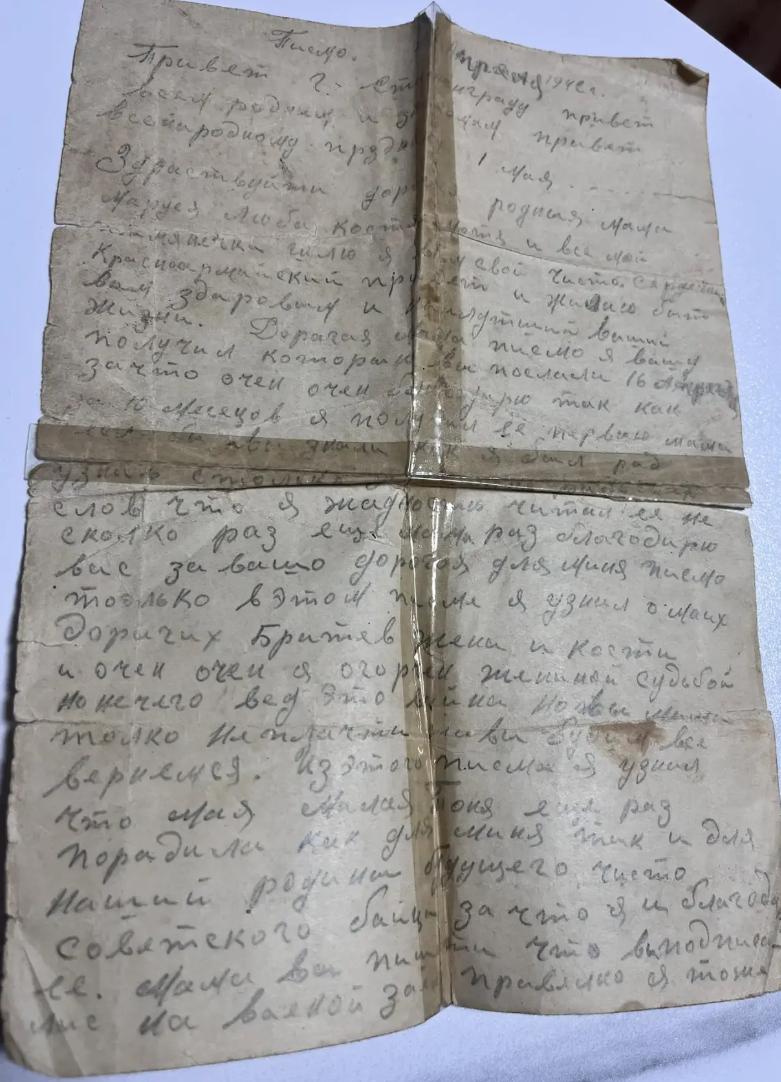 Писмо. Апреля 1942 г.
Привет Г. Сталинграду привет
всем родным и знакомым привет
всенародному праздн 1 мая
Здраствуйти дорогая родная мама
Маруся Люба Костя мотя и все мой
племянечки шлю я вам свой чисто сердечны
Красноармейский привет и желаю быть
вам здаровым и вашей
жизни. Дорагая мама писмо я вашу
получил которай вы послали 16 Апреля
за что очен очен благодарю так как
за 10 месецов я получил ее перваю мама
если бы вы знали как я был рад
узнать столько
слов что я жадностью читал ее не
сколко раз ещ мама раз благодарю
вас за вашо дорогоя для миня писмо
тоолько в этом писме я узнал о маих
дорагих Братев жени и Кости
и очен очен я огорчен жениной судьбой
но нечего вед это война но вы мама
толко не плачти жави будим все
вернемся. Из этого писма я узнал
что мая милая Тоня ещ раз
парадила как для миня так и для
нашей родины будущего чисто
советского байца за что я и благода
ее. Мама вы пишти что вы подписа-
лис на ваеной заем правелно я тоже